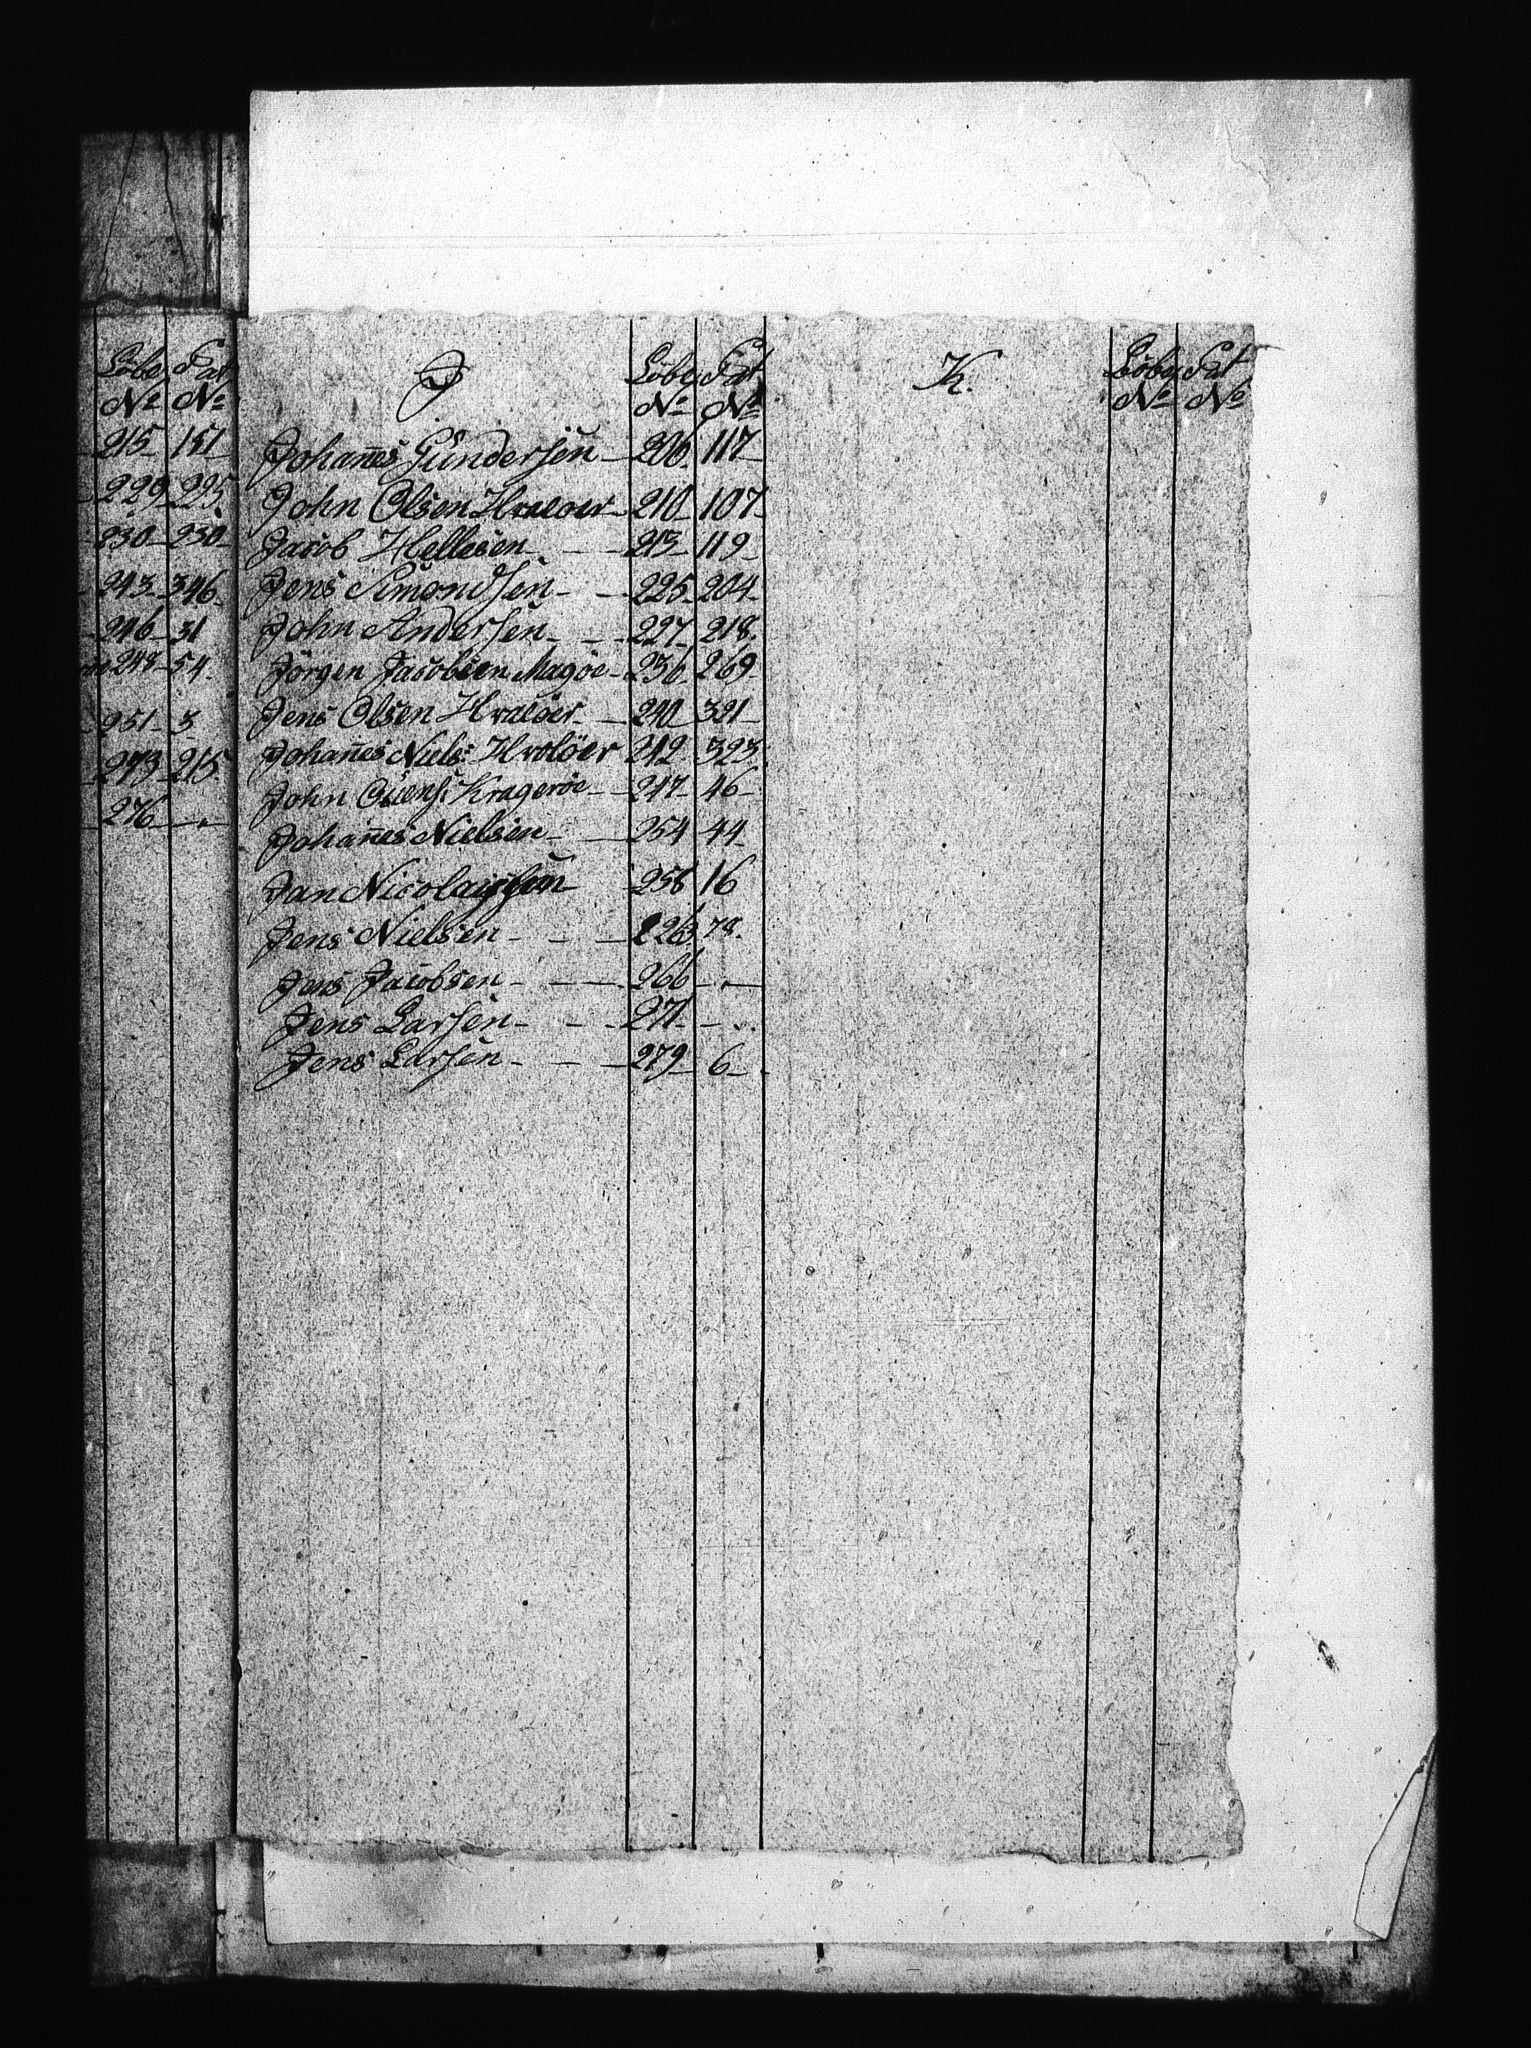 Löbe Pat
No No
215 151
229 225
230 230
243 346
246 31
248 54
251 3
273 215
276 -
J Löbe Pat
No No
Johan̄es Gundersen 206 117
John Olsen Hvaloer 210 107
Jacob Hellesen 213 119
Jens Simondsen 225 204
John Andersen 227 218
Jörgen Jacobsen Magöe 236 269
Jens Olsen Hvalöer 240 321
Johan̄es Niels: Hvolöer 242 323
John Krageröe 247 46
Johan̄es Nielsen 254 44
Jan Nicolayssen 258 16
Jens Nielsen 263 78
Jens Jacobsen 266 -
Jens Larsen 271 -
Jens Larsen 279 6
K. Löbe Pat
No No